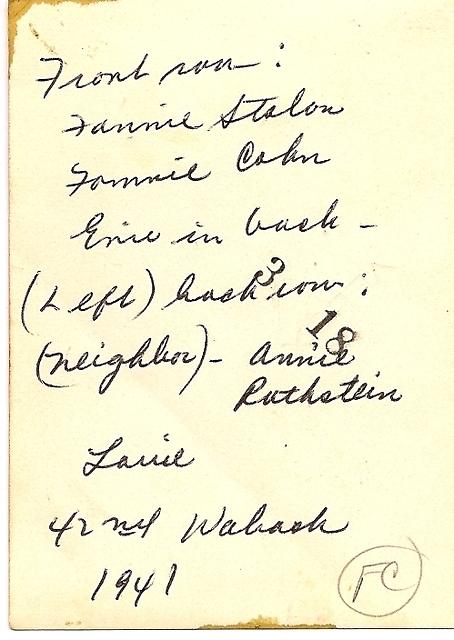 Front row :
Fannie Stolon
Fannie Cohn
Ernie in back -
(Left) back row :
3
18
(neighbor) - Annie
Rothstein
Louie
42nd Wabash
1941
FC